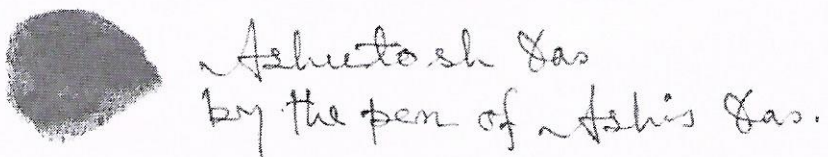 Ashutosh Das
by the pen of Ashis Das.